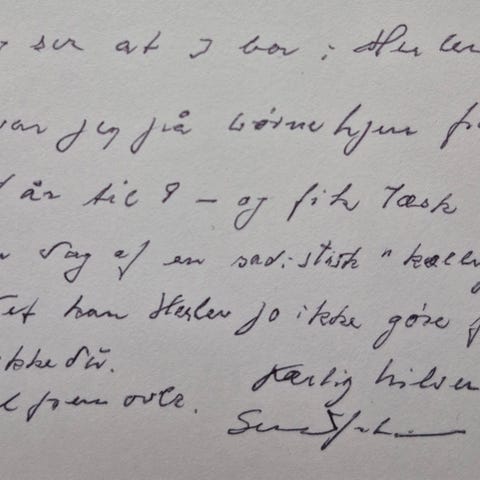 ser at I bor i Herlev
var jeg på børnehjem fr
år til 9 – og fik Tæsk
Dag af en sadistisk "kælli
et kan Herlev jo ikke gøre f
kke du. Kærlig hilsen
l frem over.